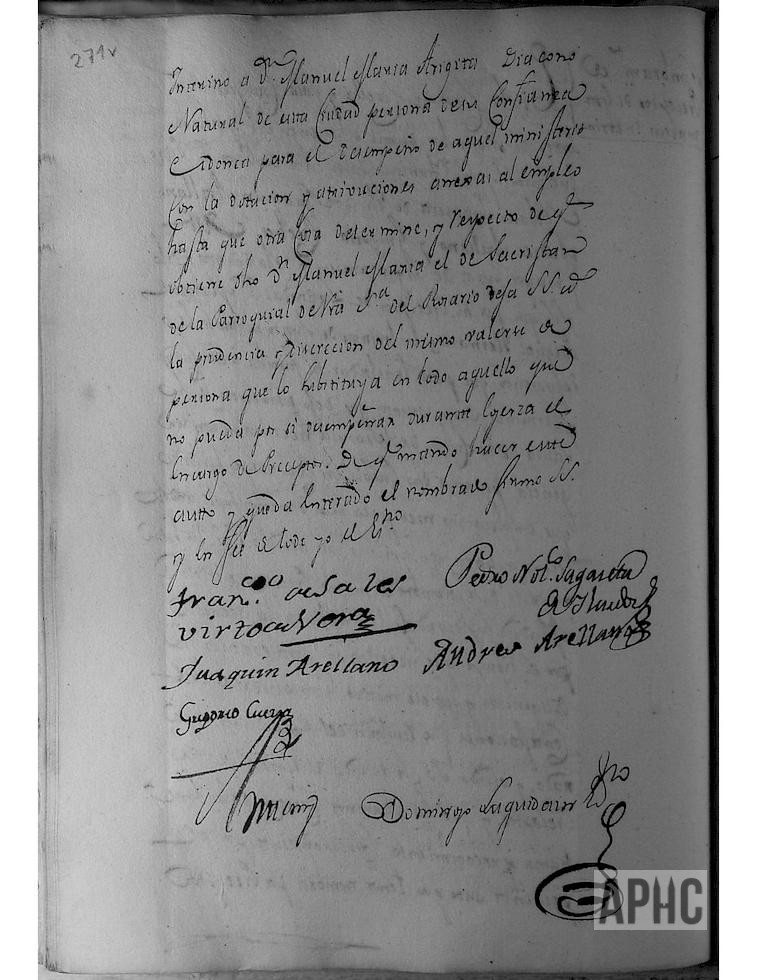 271v
Interino a Dn Manuel Maria Arigita Diacono
Natural de esta Ciudad persona de su Confianza
e idonea para el desempeño de aquel ministerio
con la dotacion y atrivuciones anexas al empleo
hasta que otra Cosa determine, y respecto de qe
obtiene dho Dn Manuel Maria el de Sacristan
de la Parroquial de Nra Sra del Rosario deja SS. a
la prudencia y discrecion del mismo valerse de
persona que lo substituya en todo aquello que
no pueda por si desempeñar durante egerza el
encargo de Preceptor. De qe mando hacer este
autto y queda enterado el nombrado firmo SS.
y en fee de todo yo el Esno
Franco de Sales
virto de Vera
Pedro Nol.o Sagaseta
de Ilurdoz
Juaquin Arellano
Andres Arellano
Gregorio Guerra
Ante mi
Domingo Laquidain Esno
APHC